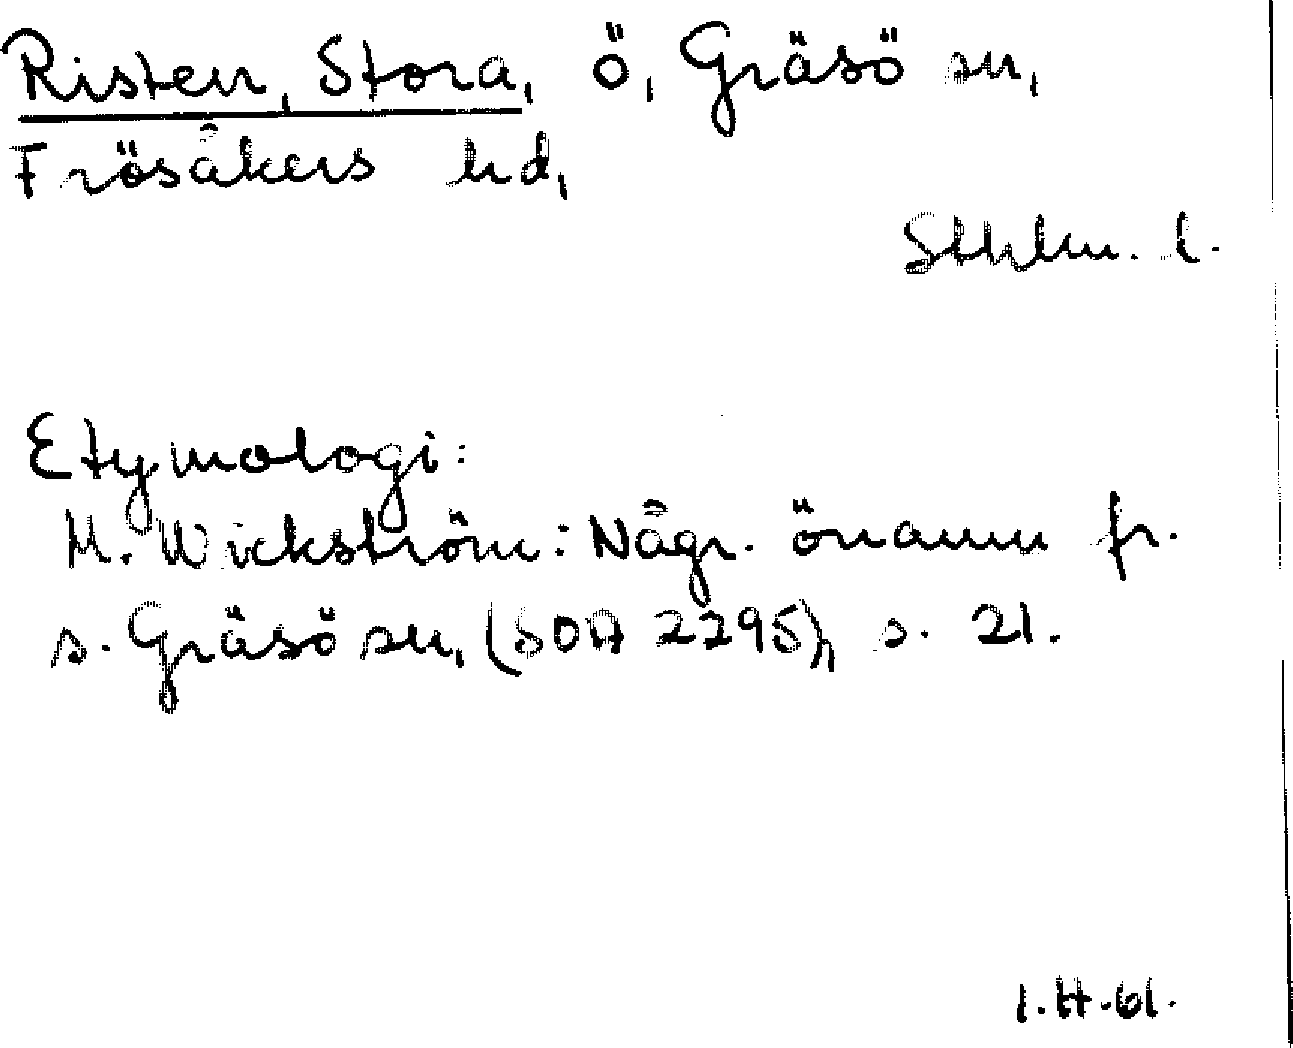 Risten, Stora, ö, Gräsö sn,
Frösåkers hd,
Sthlm. l.
Etymologi:
M. Wickström: Någr. önamn fr.
s. Gräsö sn, (SOA 2295), s. 21.
I.H.61.